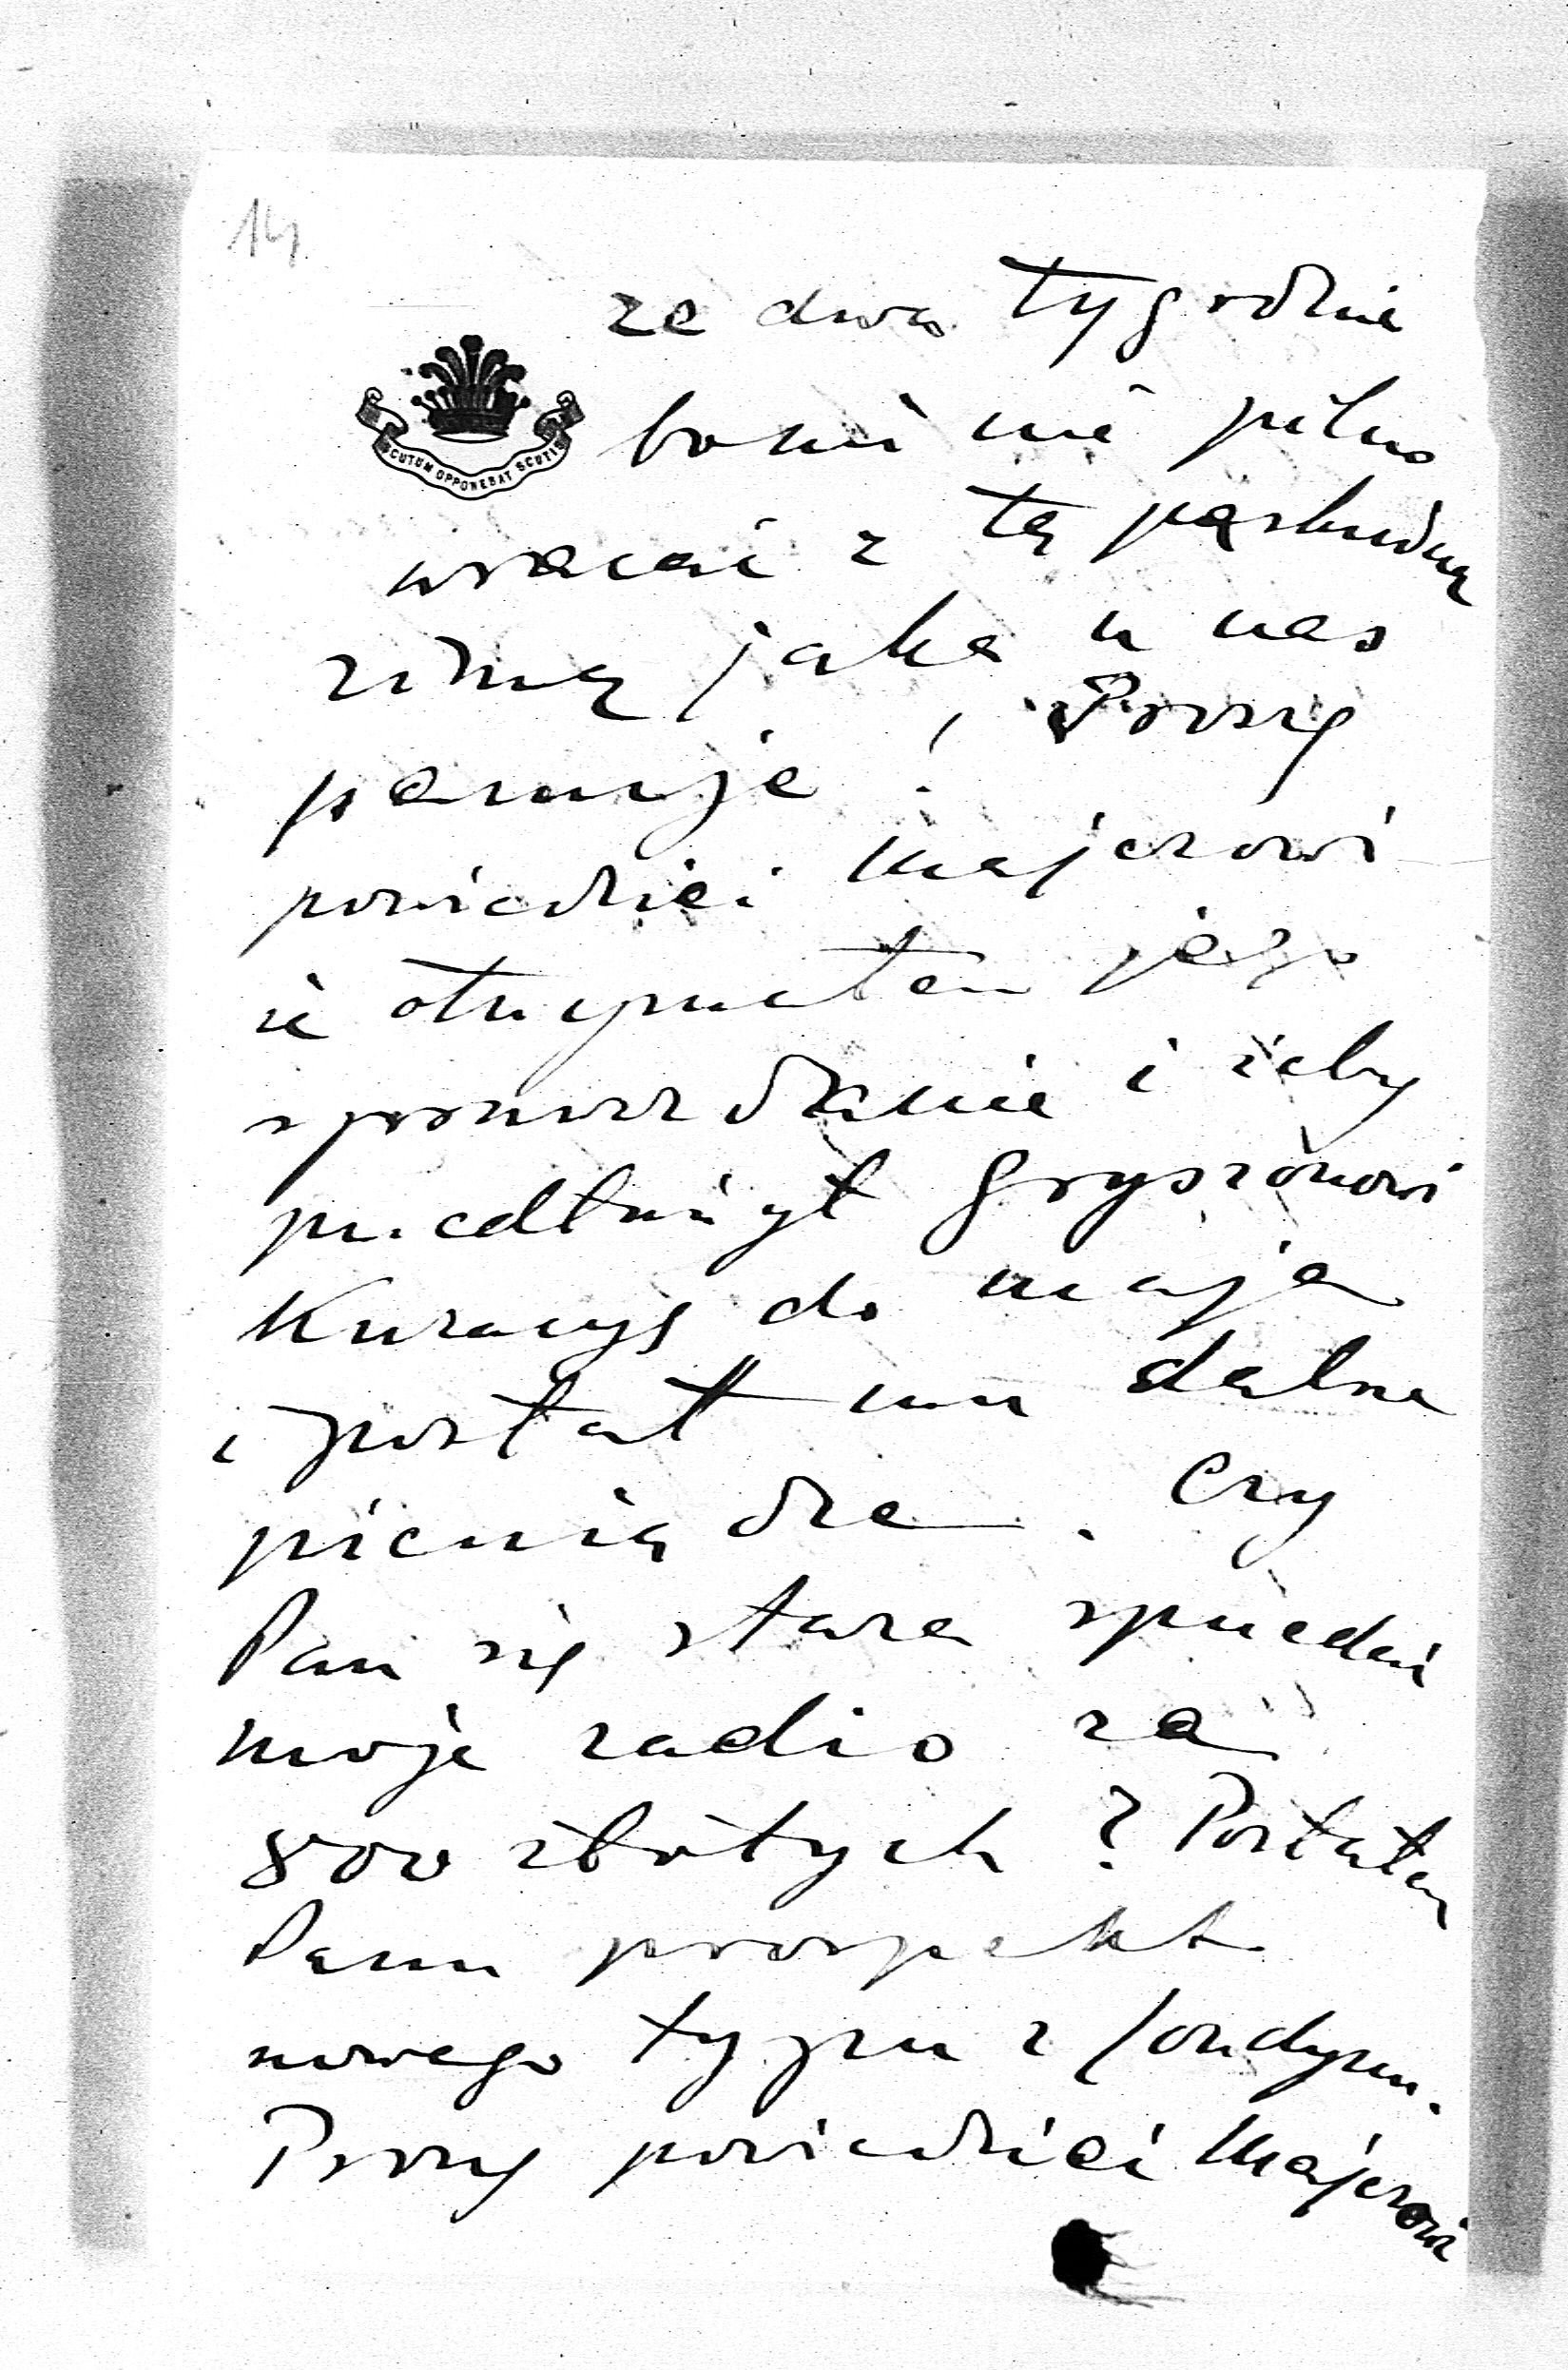 14
ze dwa tygodnie
SCUTUM OPPONEBAT SCUTIS
bo mi nie pilno
wracać z tą paskudną
zimą jaka u nas
panuje! Proszę
powiedzieć Majerowi
że otrzymałem jego
sprawozdanie i żeby
przedłużył Gryszónowi
Kuracyę do maja
i posłał mu dalsze
pieniądze. Czy
Pan się stara sprzedać
moje radio za
800 złotych? Posłałem
Panu prospekt
nowego typu z Londynu.
Proszę powiedzieć Majerowi